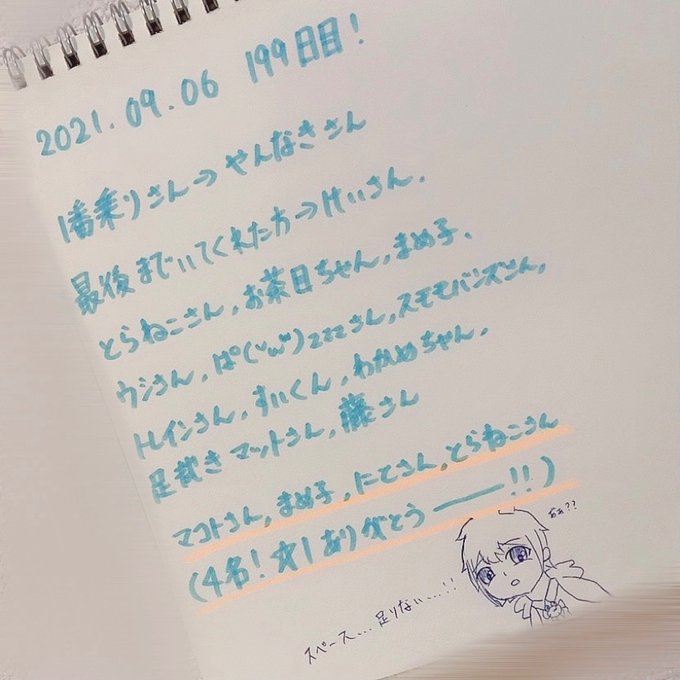 2021.09.06 199日目!
1番乗りさん→やんなきさん
最後までいてくれた方→けいさん、
とらねこさん、お茶目ちゃん、まめ子、
ウシさん、ぱ°(˘ω˘)zzzさん、スモモバンズさん、
トレインさん、すいくん、わかめちゃん、
足裁きマットさん、藤さん
マコトさん、まめ子、にてさん、とらねこさん
(4名!☆1ありがとう──!!)
あぁ??
スペース...足りない...!!